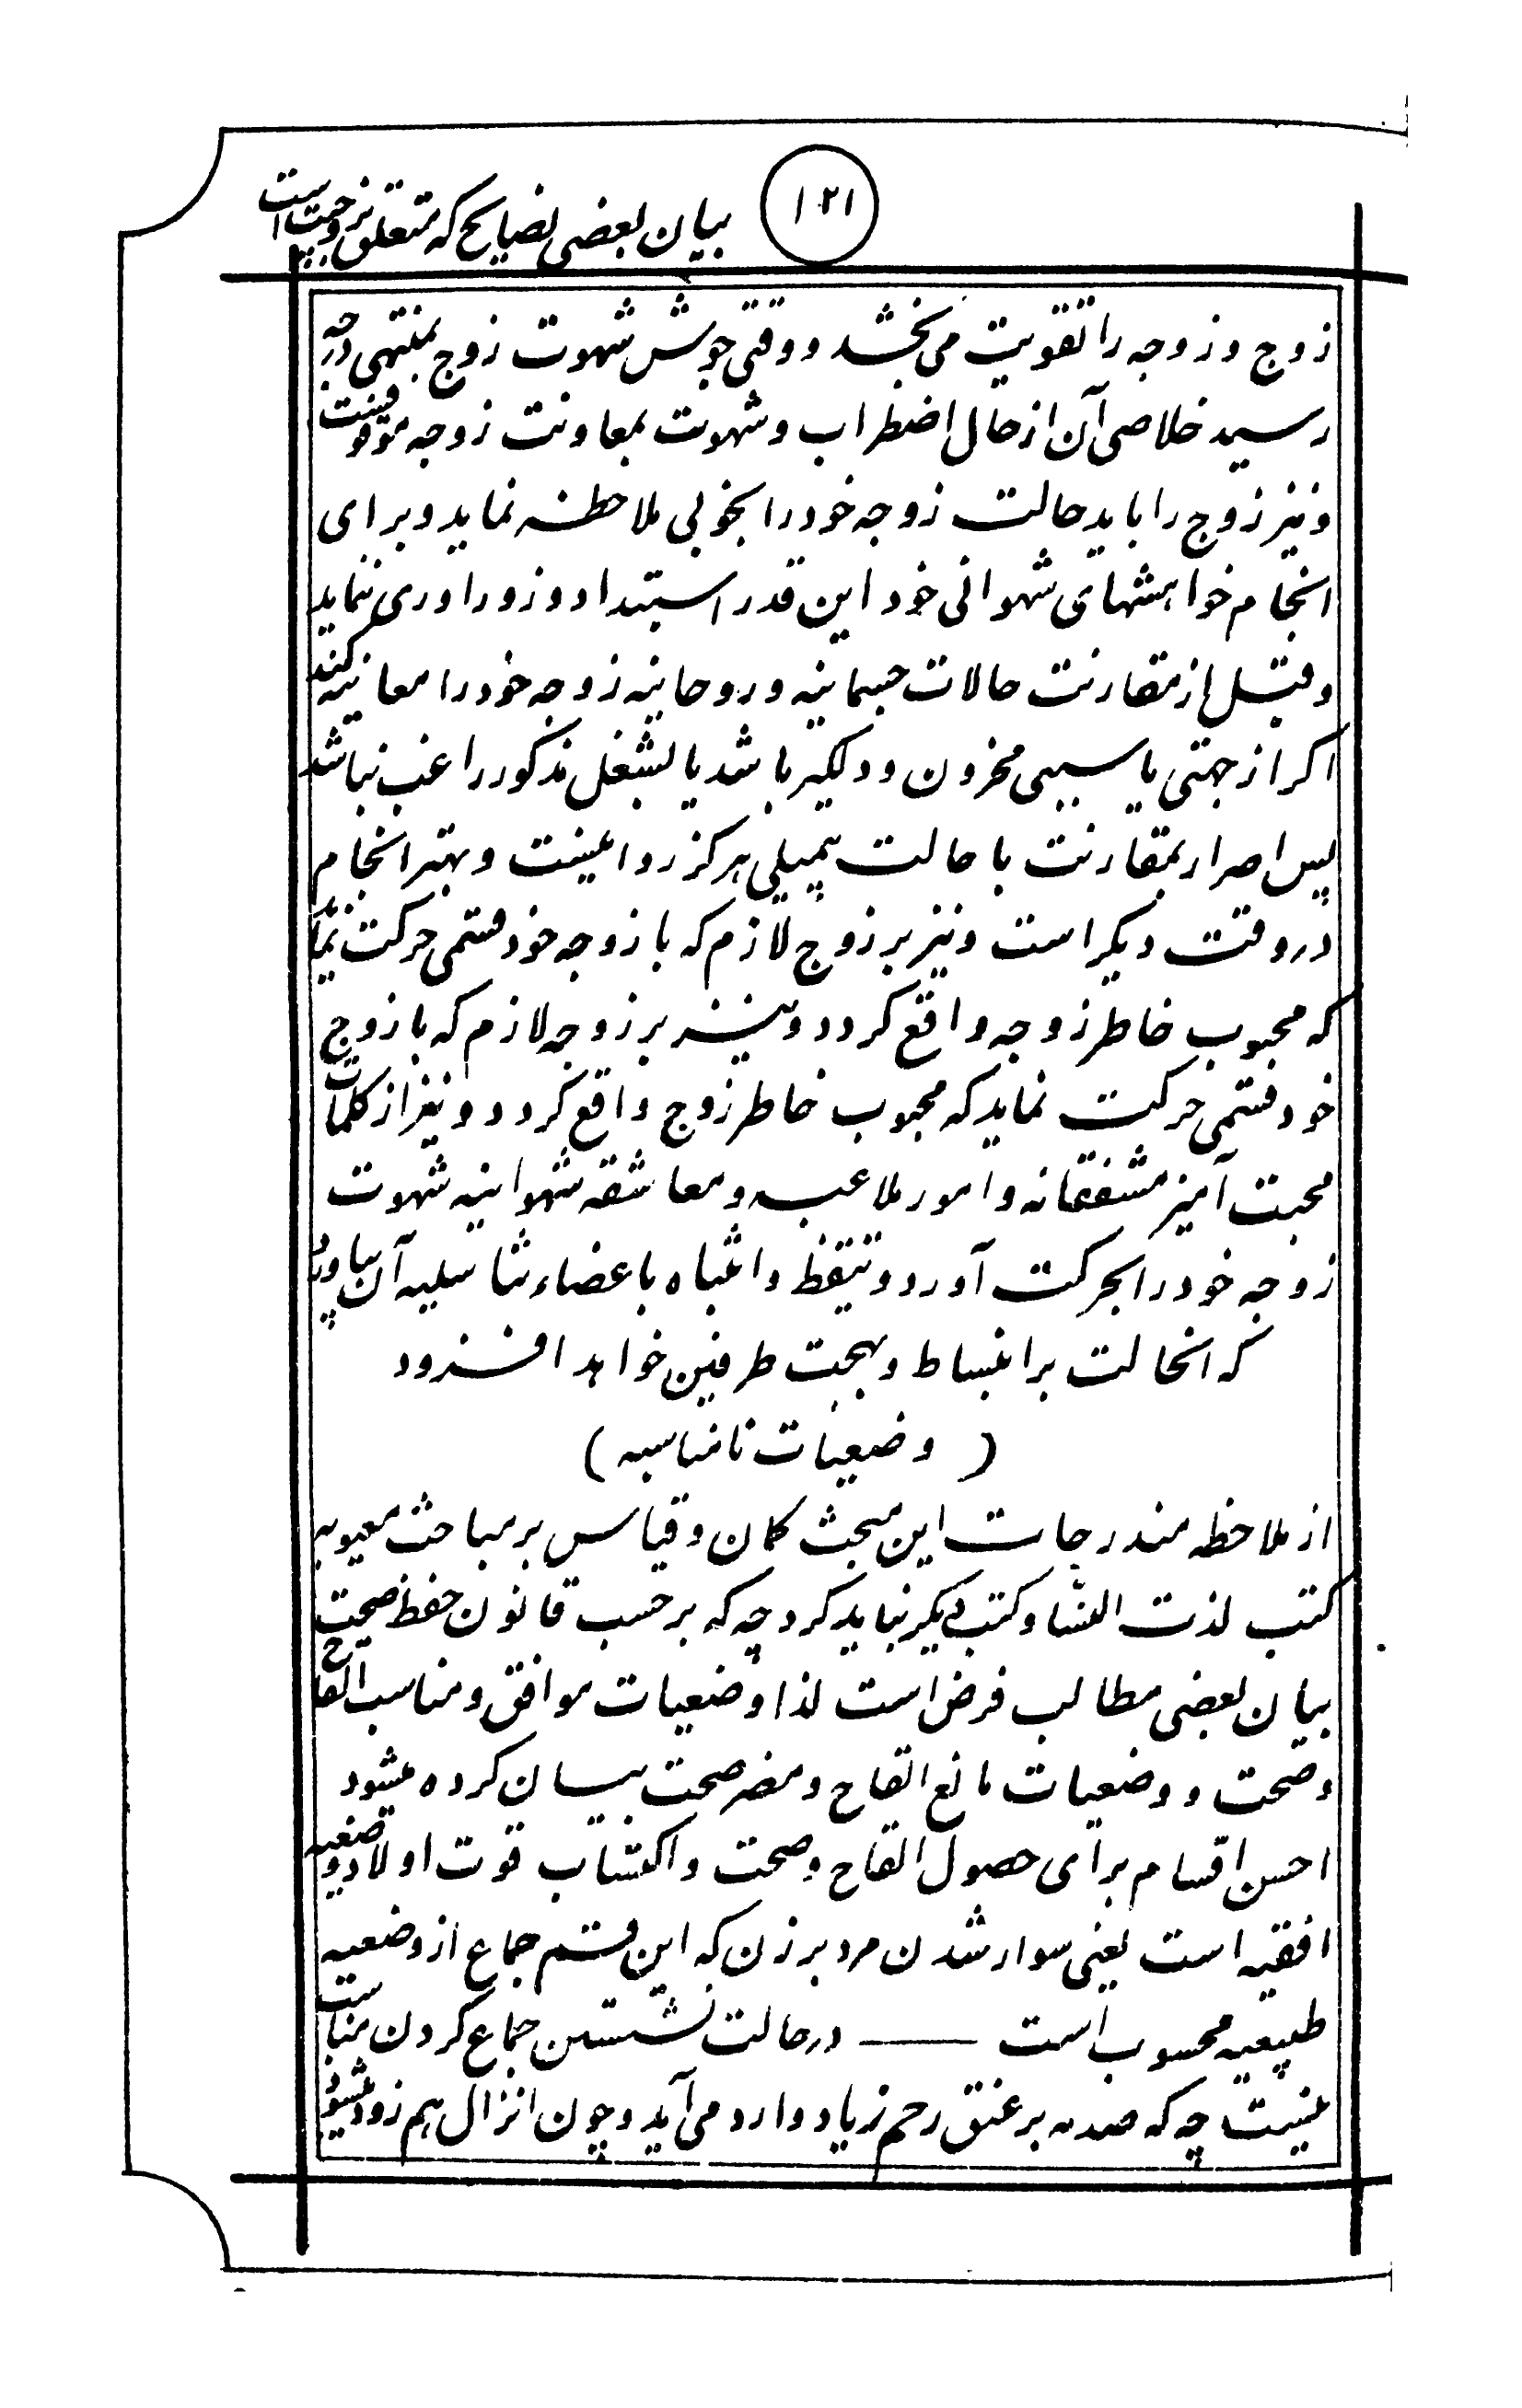 ۱۲۱
بیان بعضی نصایح که متعلق بزوجیت است
زوج و زوجه را تقویت می بخشد و وقتی جوش شهوت زوج بمنتهی درجه
رسید خلاصی آن از حال اضطراب و شهوت بمعاونت زوجه موقوفست
و نیز زوج را باید حالت زوجه خود را بخوبی ملاحظه نماید و برای
انجام خواهشهای شهوانی خود این قدر استبداد و زور اوری ننماید
و قبل از مقارنت حالات جسمانیه و روحانیه زوجه خود را معاینه کند
اکر از جهتی یا سببی محزون و دلکیر باشد یا بشغل مذکور راغب نباشد
پس اصرار بمقارنت با حالت بیمیلی هرکز روا نیست و بهتر انجام
در وقت دیکر است و نیز بر زوج لازم که با زوجه خود قسمی حرکت نماید
که محبوب خاطر زوجه واقع کردد و نیز بر زوجه لازم که با زوج
خود قسمی حرکت نماید که محبوب خاطر زوج واقع کردد و نیز از کلمات
محبت آمیز مشفقانه و امور ملاعبه و معاشقه شهوانیه شهوت
زوجه خود را بحرکت آورد و تیقظ و انتباه باعضاء تناسلیه آن بیاورد
که انحالت بر انبساط و بهجت طرفین خواهد افزود
( وضعیات نامناسبه )
از ملاحظه مندرجات این مبحث کمان و قیاس بر مباحث معیوبه
کتب لذت النسا و کتب دیکر نباید کرد چه که بر حسب قانون حفظ صحت
بیان بعضی مطالب فرض است لذا وضعیات موافق و مناسب القاح
و صحت و وضعیات مانع القاح و مضر صحت بیان کرده میشود
احسن اقسام برای حصول القاح و صحت و اکتساب قوت اولاد وضعیه
افقیه است یعنی سوار شدن مرد بر زن که این قسم جماع از وضعیه
طبیعیه محسوب است —— در حالت نشستن جماع کردن مناسب
نیست چه که صدمه بر عنق رحم زیاد وارد می آید و چون انزال هم زود میشود